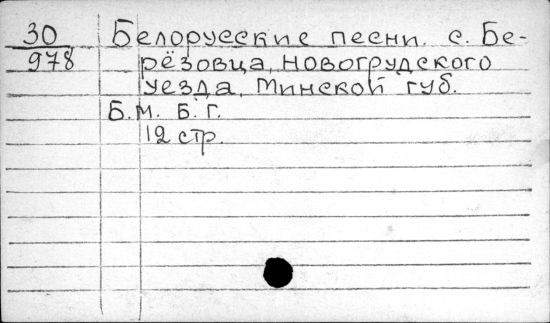 30 Белорусские песни. с. Бе-
978 рёзовца, Новогрудского
уезда, Минской губ.
Б.м. Б.г.
12 стр.